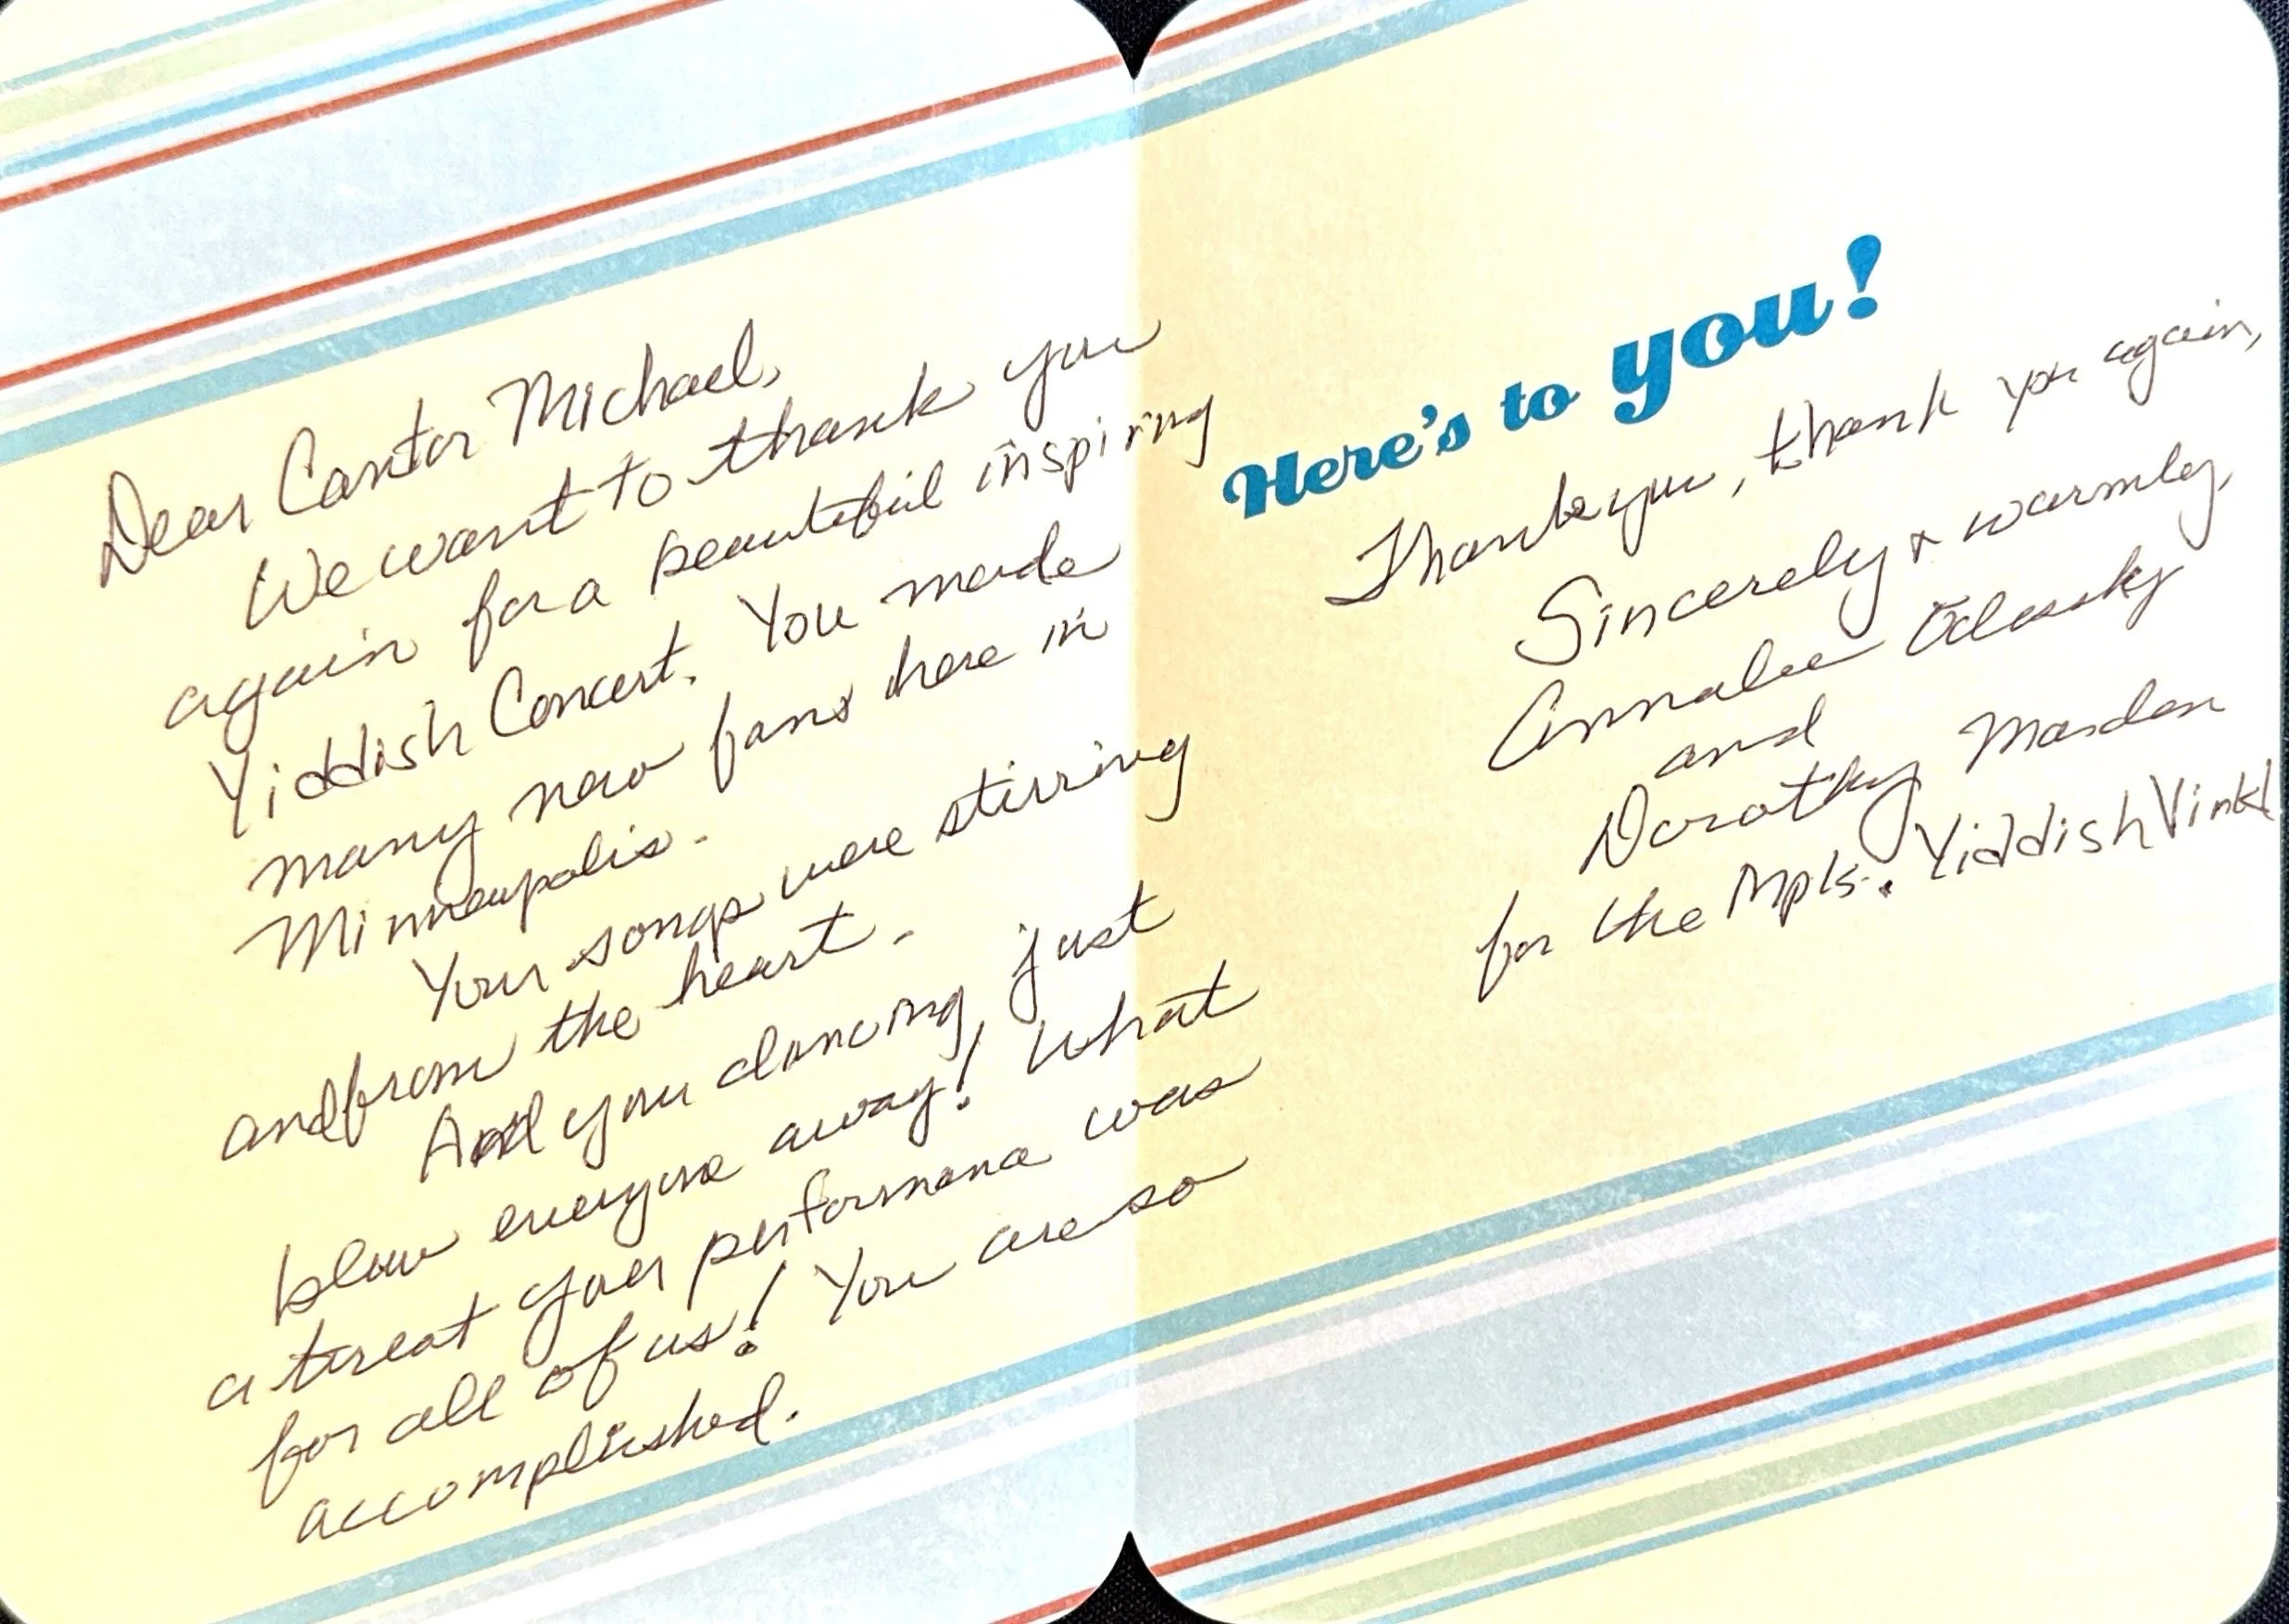 Dear Cantor Michael,
We want to thank you
again for a beautiful inspiring
Yiddish Concert. You made
many new fans here in
Minneapolis.
Your songs were stirring
and from the heart.
And your dancing just
blew everyone away! What
a treat your performance was
for all of us! You are so
accomplished.
Here's to you!
Thank you, thank you again,
Sincerely & warmly,
Annalee Odessky
and
Dorothy Marden
for the Mpls. Yiddish Vinkl